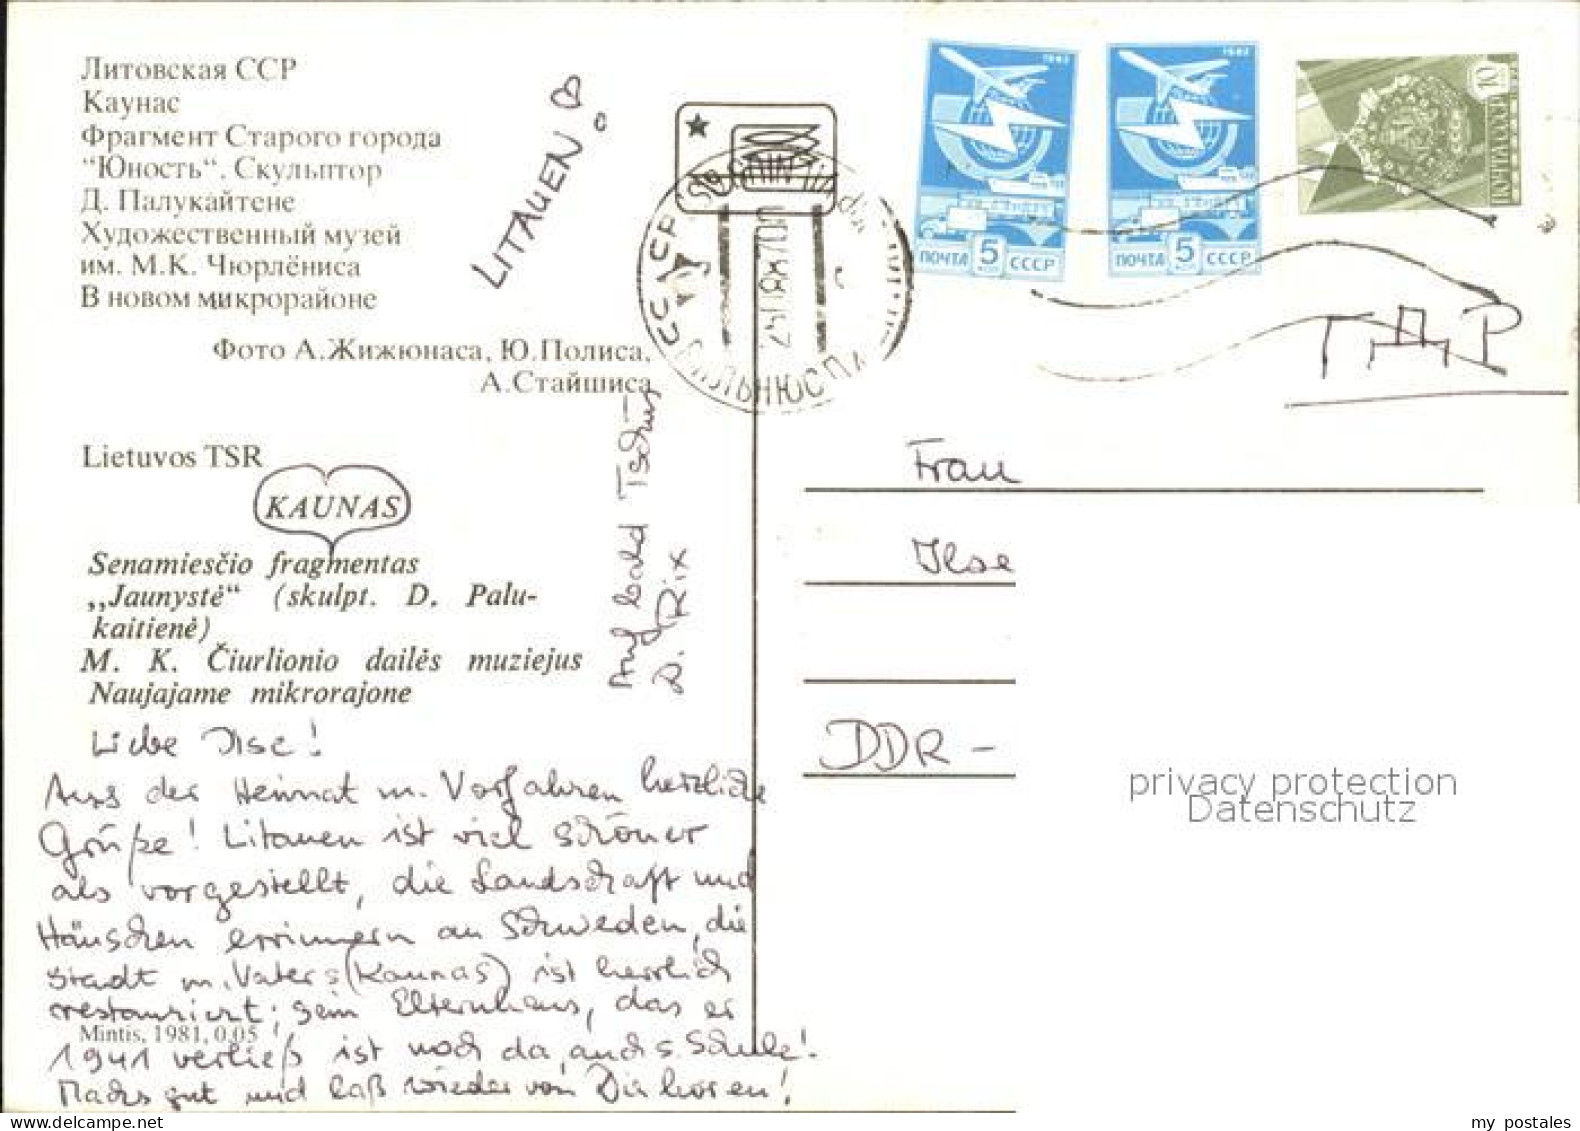 Литовская ССР
Каунас
Фрагмент Старого города
"Юность". Скульптор
Д. Палукайтене
Художественный музей
им. М.К. Чюрлёниса
В новом микрорайоне
Фото А.Жижюнаса, Ю.Полиса,
А.Стайшиса
LITAUEN
Lietuvos TSR
KAUNAS
Senamiesčio fragmentas
„Jaunystė“ (skulpt. D. Palu-
kaitienė)
M. K. Čiurlionio dailės muziejus
Naujajame mikrorajone
Liebe Ilse!
Aus der Heimat m. Vorfahren herzliche
Grüße! Litauen ist viel schöner
als vorgestellt, die Landschaft und
Häuschen errinnern an Schweden, die
Stadt m. Vaters (Kaunas) ist herrlich
restauriert; sein Elternhaus, das er
Mintis, 1981, 0,05
1941 verließ ist noch da, auch s. Schule!
Machs gut und laß wieder von Dir hören!
Auf bald Tschüs
1982
ПОЧТА 5 КОП СССР
1982
ПОЧТА 5 КОП СССР
10
ПОЧТА СССР
ВИЛЬНЮС
ГДР
Frau
Ilse
DDR -
privacy protection
Datenschutz
my postales